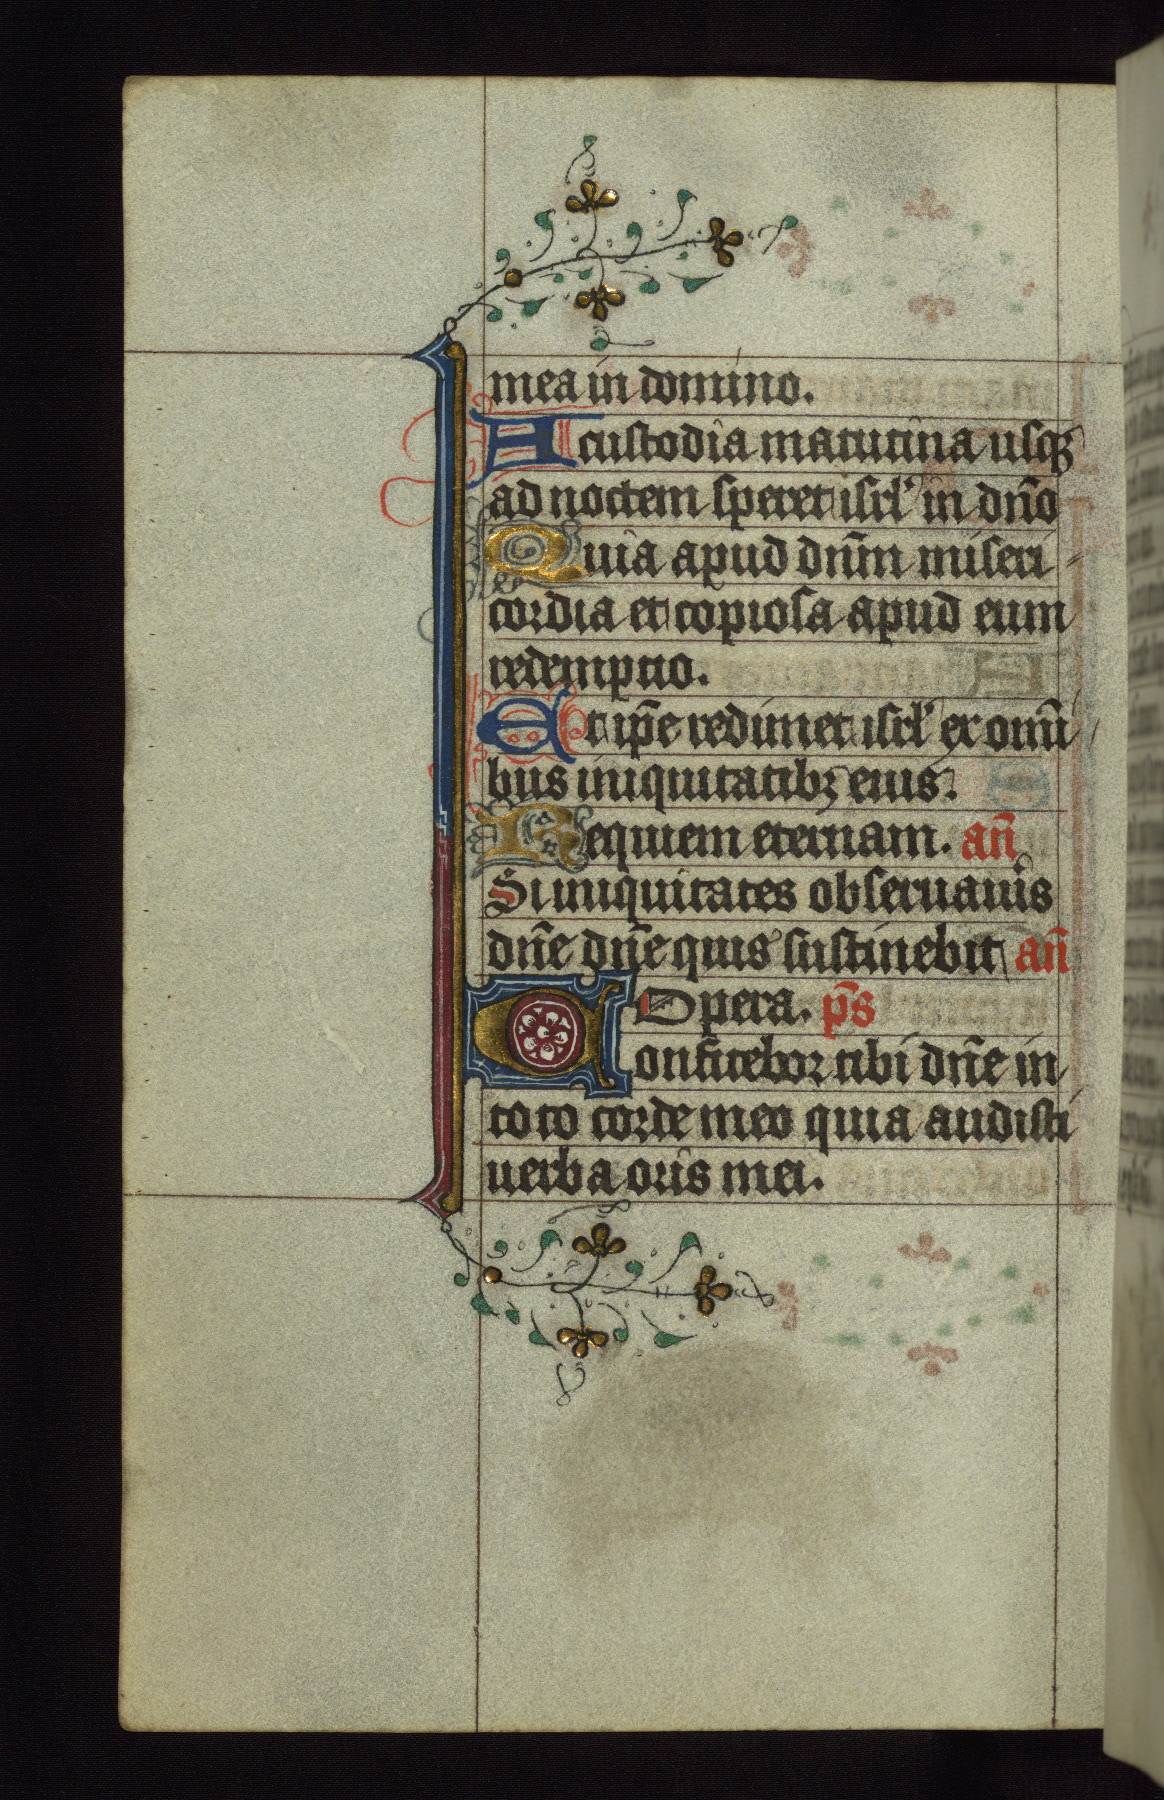 mea in domino.
A custodia matutina usq₃
ad noctem speret isrl' in dn̄o
Quia apud dn̄m miseri-
cordia et copiosa apud eum
redemptio.
Et ip̄e redimet isrl' ex omni-
bus iniquitatib₃ eius.
Requiem eternam. an̄
Si iniquitates obseruauis
dn̄e dn̄e quis sustinebit an̄
Opera. ps̄
Confitebor tibi dn̄e in
toto corde meo quia audisti
uerba oris mei.